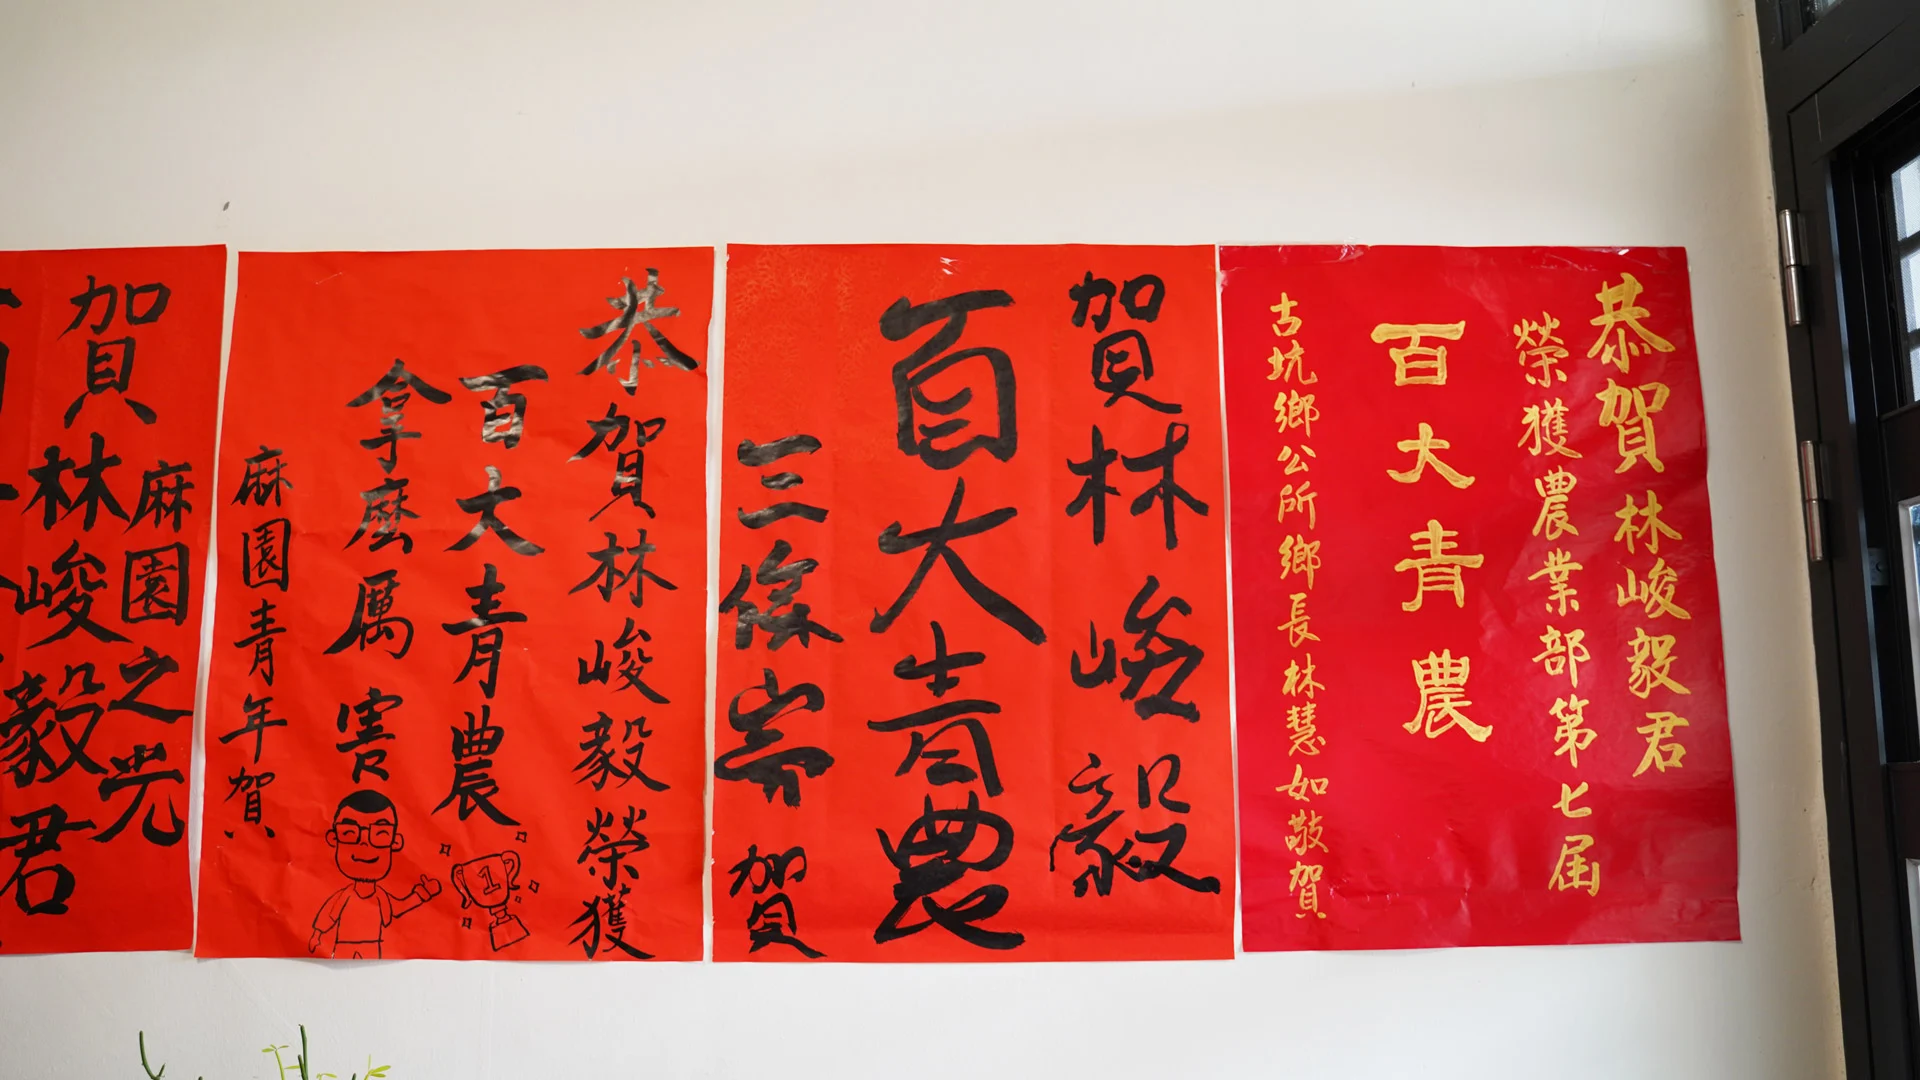 恭賀林峻毅君
榮獲農業部第七屆
百大青農
古坑鄉公所鄉長林慧如敬賀
賀林峻毅
百大青農
三條崙賀
恭賀林峻毅榮獲
百大青農
拿麼厲害
麻園青年賀
1
麻園之光
賀林峻毅君